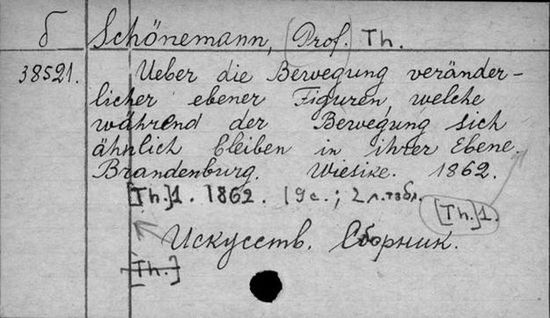 б Schönemann, (Prof.) Th.
38521. Ueber die Bewegung veränder-
licher ebener Figuren, welche
während der Bewegung sich
ähnlich bleiben in ihrer Ebene.
Brandenburg. Wiesike. 1862.
[Th.]1. 1862. 19с.; 2 л. табл.
[Th.]1.
Искусств. Сборник.
[Th.]